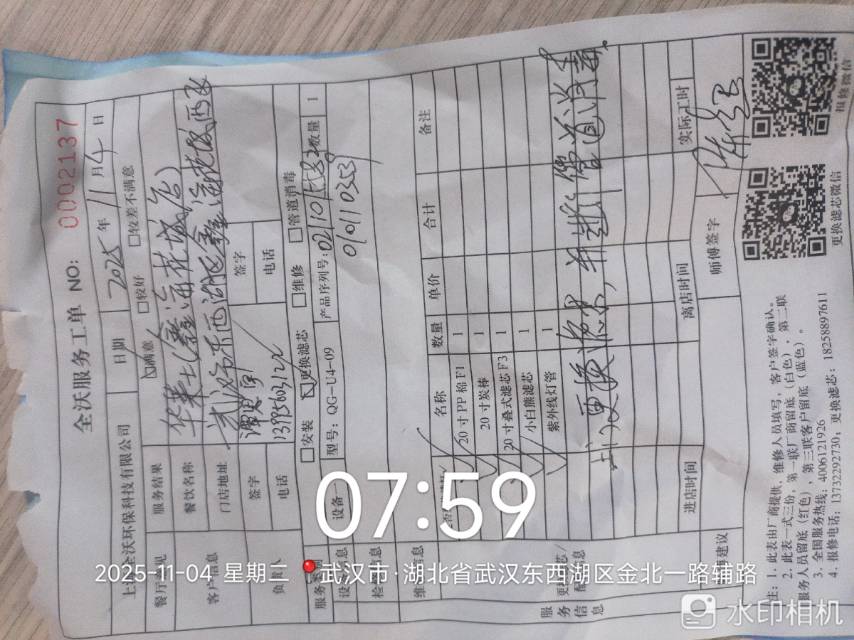 全沃服务工单 NO: 0002137
全沃环保科技有限公司
日期 2025年11月4日
餐厅意见 服务结果 ☑满意 □较好 □较差不满意
客户信息 餐饮名称 华莱士(鑫海花城店)
门店地址
签字 签字
电话 电话
□安装 ☑更换滤芯 □维修 □管道消毒
设备信息 设备 型号: QG-U4-09 产品序列号: 数量 1
名称 数量 单价 合计 备注
20寸PP棉F1 1
20寸炭棒 1
20寸叠式滤芯F3 1
小白熊滤芯 1
紫外线灯管 1
服务信息
更换滤芯, 并进行管道消毒.
进店时间 离店时间 实际工时
建议 师傅签字
注: 1, 此表由厂商提供, 维修人员填写, 客户签字确认。
2, 此表一式三份, 第一联厂商留底(白色), 第二联
服务人员留底(红色), 第三联客户留底(蓝色)。
3, 全国服务热线: 4006121926
4, 报修电话: 13732292730; 更换滤芯: 18258897611
更换滤芯微信
报修微信
07:59
2025-11-04 星期二 武汉市·湖北省武汉东西湖区金北一路辅路
水印相机